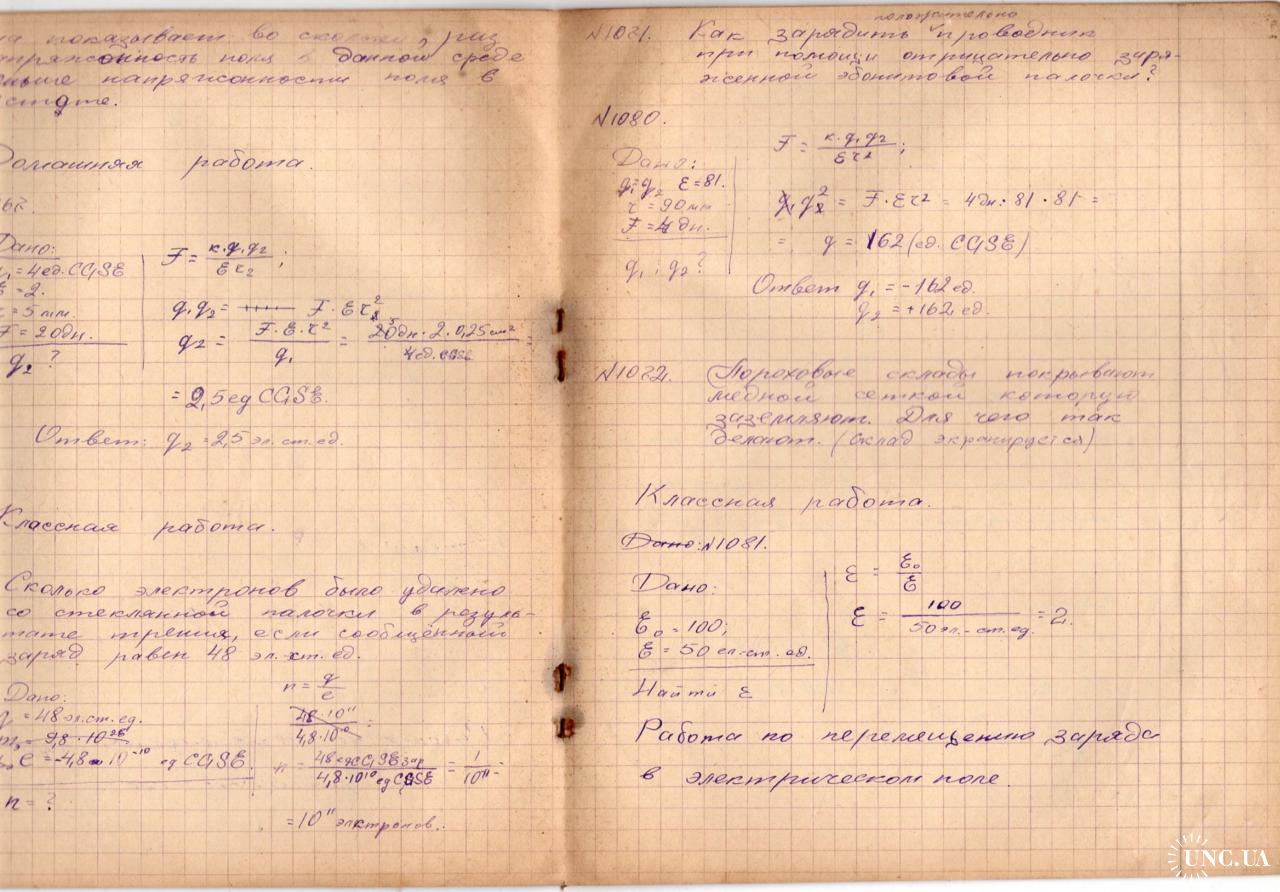 показывает во сколько раз
напряжонность поля в данной среде
меньше напряжонности поля в
Домашняя работа.
Дано:
q₁ = 4 ед. CGSE
ε = 2.
r = 5 mm.
F = 20 дн.
q₂ ?
F = к.q₁q₂ / Ετ₂ ;
q₁q₂ = F·Ετ²
q₂ = F·Ε·τ² / q₁ = 20дн·2·0,25см² / 4ед.CGSE =
= 2,5 ед CGSE.
Ответ: q₂ = 2,5 эл.ст.ед.
Классная работа.
Сколько электронов было удалено
со стеклянной палочки в резуль-
тате трения, если сообщённый
заряд равен 48 эл.-ст. ед.
Дано:
q = 48 эл.ст.ед.
e = -4,8·10⁻¹⁰ ед CGSE.
n = ?
n = q / e
48·10¹¹ / 4,8·10¹⁰ =
n = 48 ед CGSE зар / 4,8·10¹⁰ ед CGSE = 1 / 10¹¹ =
= 10¹¹ электронов.
положительно
N1021. Как зарядить проводник
при помощи отрицательно заря-
женной эбонитовой палочки?
N1080.
Дано:
q₁=q₂ ε=81.
τ = 90 мм
F = 4 дн.
q₁; q₂ ?
F = к.q₁q₂ / Ετ² ;
q₂² = F·Ετ² = 4дн·81·81 =
= q = 162 (ед. CGSE)
Ответ q₁ = -162 ед.
q₂ = +162 ед.
N1022. Пороховые склады покрывают
медной сеткой которую
заземляют. Для чего так
делают. (Склад экранируется)
Классная работа.
Дано: N1081.
Дано:
E₀ = 100;
E = 50 эл.-ст. ед.
Найти ε
ε = E₀ / E
ε = 100 / 50 эл.-ст. ед. = 2.
Работа по перемещению заряда
в электрическом поле.
UNC.UA